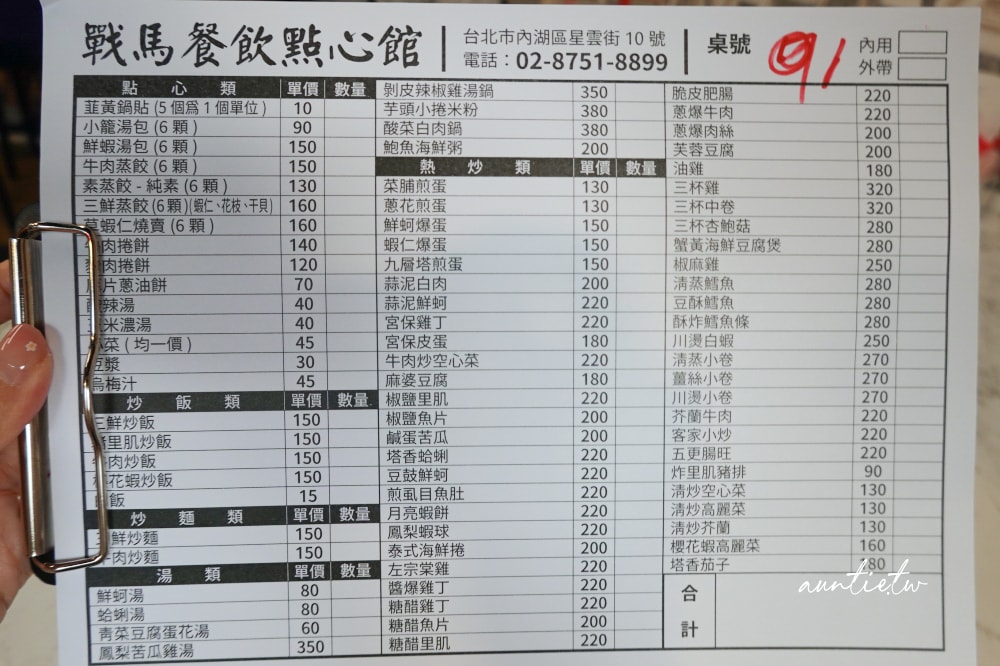 戰馬餐飲點心館
台北市內湖區星雲街 10 號
電話：02-8751-8899
桌號 91
內用
外帶
點心類 單價 數量
韮黃鍋貼 (5 個爲 1 個單位) 10
小籠湯包 (6 顆) 90
鮮蝦湯包 (6 顆) 150
牛肉蒸餃 (6 顆) 150
素蒸餃 - 純素 (6 顆) 130
三鮮蒸餃 (6 顆)(蝦仁、花枝、干貝) 160
蝦仁燒賣 (6 顆) 160
肉捲餅 140
肉捲餅 120
片蔥油餅 70
辣湯 40
米濃湯 40
菜 (均一價) 45
豆漿 30
烏梅汁 45
炒飯類 單價 數量
三鮮炒飯 150
里肌炒飯 150
肉炒飯 150
花蝦炒飯 150
飯 15
炒麵類 單價 數量
鮮炒麵 150
牛肉炒麵 150
湯類 單價 數量
鮮蚵湯 80
蛤蜊湯 80
青菜豆腐蛋花湯 60
鳳梨苦瓜雞湯 350
剝皮辣椒雞湯鍋 350
芋頭小捲米粉 380
酸菜白肉鍋 380
鮑魚海鮮粥 200
熱炒類 單價 數量
菜脯煎蛋 130
蔥花煎蛋 130
鮮蚵爆蛋 150
蝦仁爆蛋 150
九層塔煎蛋 150
蒜泥白肉 200
蒜泥鮮蚵 220
宮保雞丁 220
宮保皮蛋 180
牛肉炒空心菜 220
麻婆豆腐 180
椒鹽里肌 220
椒鹽魚片 200
鹹蛋苦瓜 200
塔香蛤蜊 220
豆鼓鮮蚵 220
煎虱目魚肚 220
月亮蝦餅 220
鳳梨蝦球 220
泰式海鮮捲 200
左宗棠雞 220
醬爆雞丁 220
糖醋雞丁 220
糖醋魚片 200
糖醋里肌 220
脆皮肥腸 220
蔥爆牛肉 220
蔥爆肉絲 200
芙蓉豆腐 200
油雞 180
三杯雞 320
三杯中卷 320
三杯杏鮑菇 280
蟹黃海鮮豆腐煲 280
椒麻雞 250
清蒸鱈魚 280
豆酥鱈魚 280
酥炸鱈魚條 280
川燙白蝦 250
清蒸小卷 270
薑絲小卷 270
川燙小卷 270
芥蘭牛肉 220
客家小炒 220
五更腸旺 220
炸里肌豬排 90
清炒空心菜 130
清炒高麗菜 130
清炒芥蘭 130
櫻花蝦高麗菜 160
塔香茄子 180
合計
auntie.tw